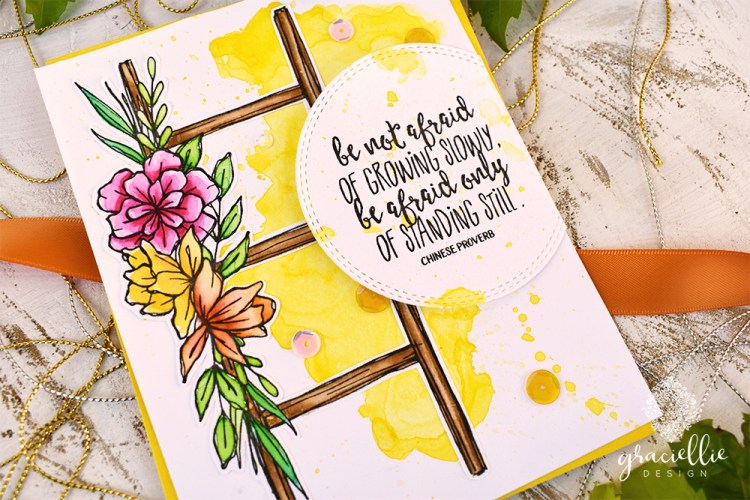 be not afraid
OF GROWING SLOWLY,
be afraid only
OF STANDING STILL.
CHINESE PROVERB
graciellie
DESIGN